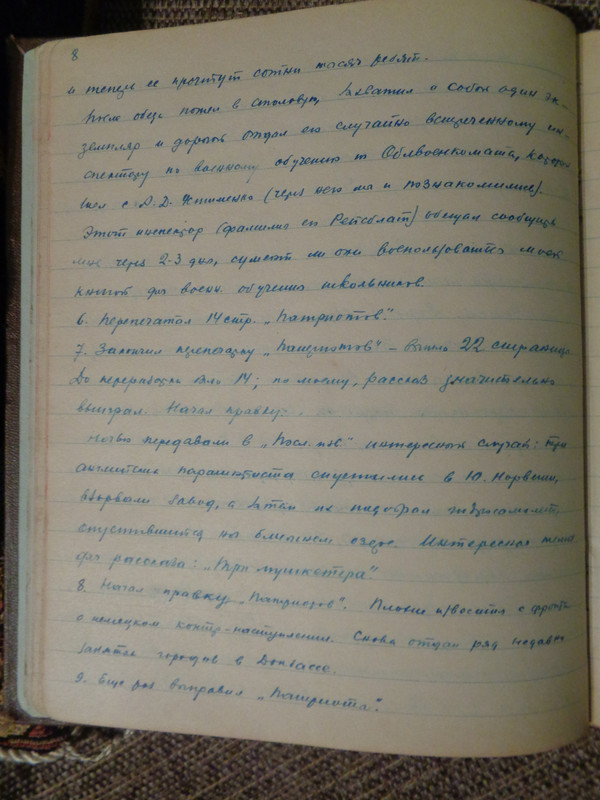 8
и теперь ее прочтут сотни тысяч ребят.
После обеда пошел в столовую, захватил с собой один эк-
земпляр и дорогой отдал его случайно встреченному ин-
спектору по военному обучению из Облвоенкомата, который
шел с Д. Д. Устименко (через него мы и познакомились).
Этот инспектор (фамилия его Рейсблат) обещал сообщить
мне через 2-3 дня, сумеют ли они воспользоваться моей
книгой для военн. обучения школьников.
6. Перепечатал 14 стр. „Патриотов".
7. Закончил перепечатку „Патриотов" – вышло 22 страницы.
До переработки было 14; по моему, рассказ значительно
выиграл. Начал правку.
Ночью передавали в „Посл. изв." интересный случай: три
английских парашютиста спустились в Ю. Норвегии,
взорвали завод, а затем их подобрал гидросамолет,
спустившийся на ближнем озере. Интересная тема
для рассказа: „Три мушкетера".
8. Начал правку „Патриотов". Плохие новости с фронта
о немецком контр-наступлении. Снова отдан ряд недавно
занятых городов в Донбассе.
9. Еще раз выправил „Патриота".